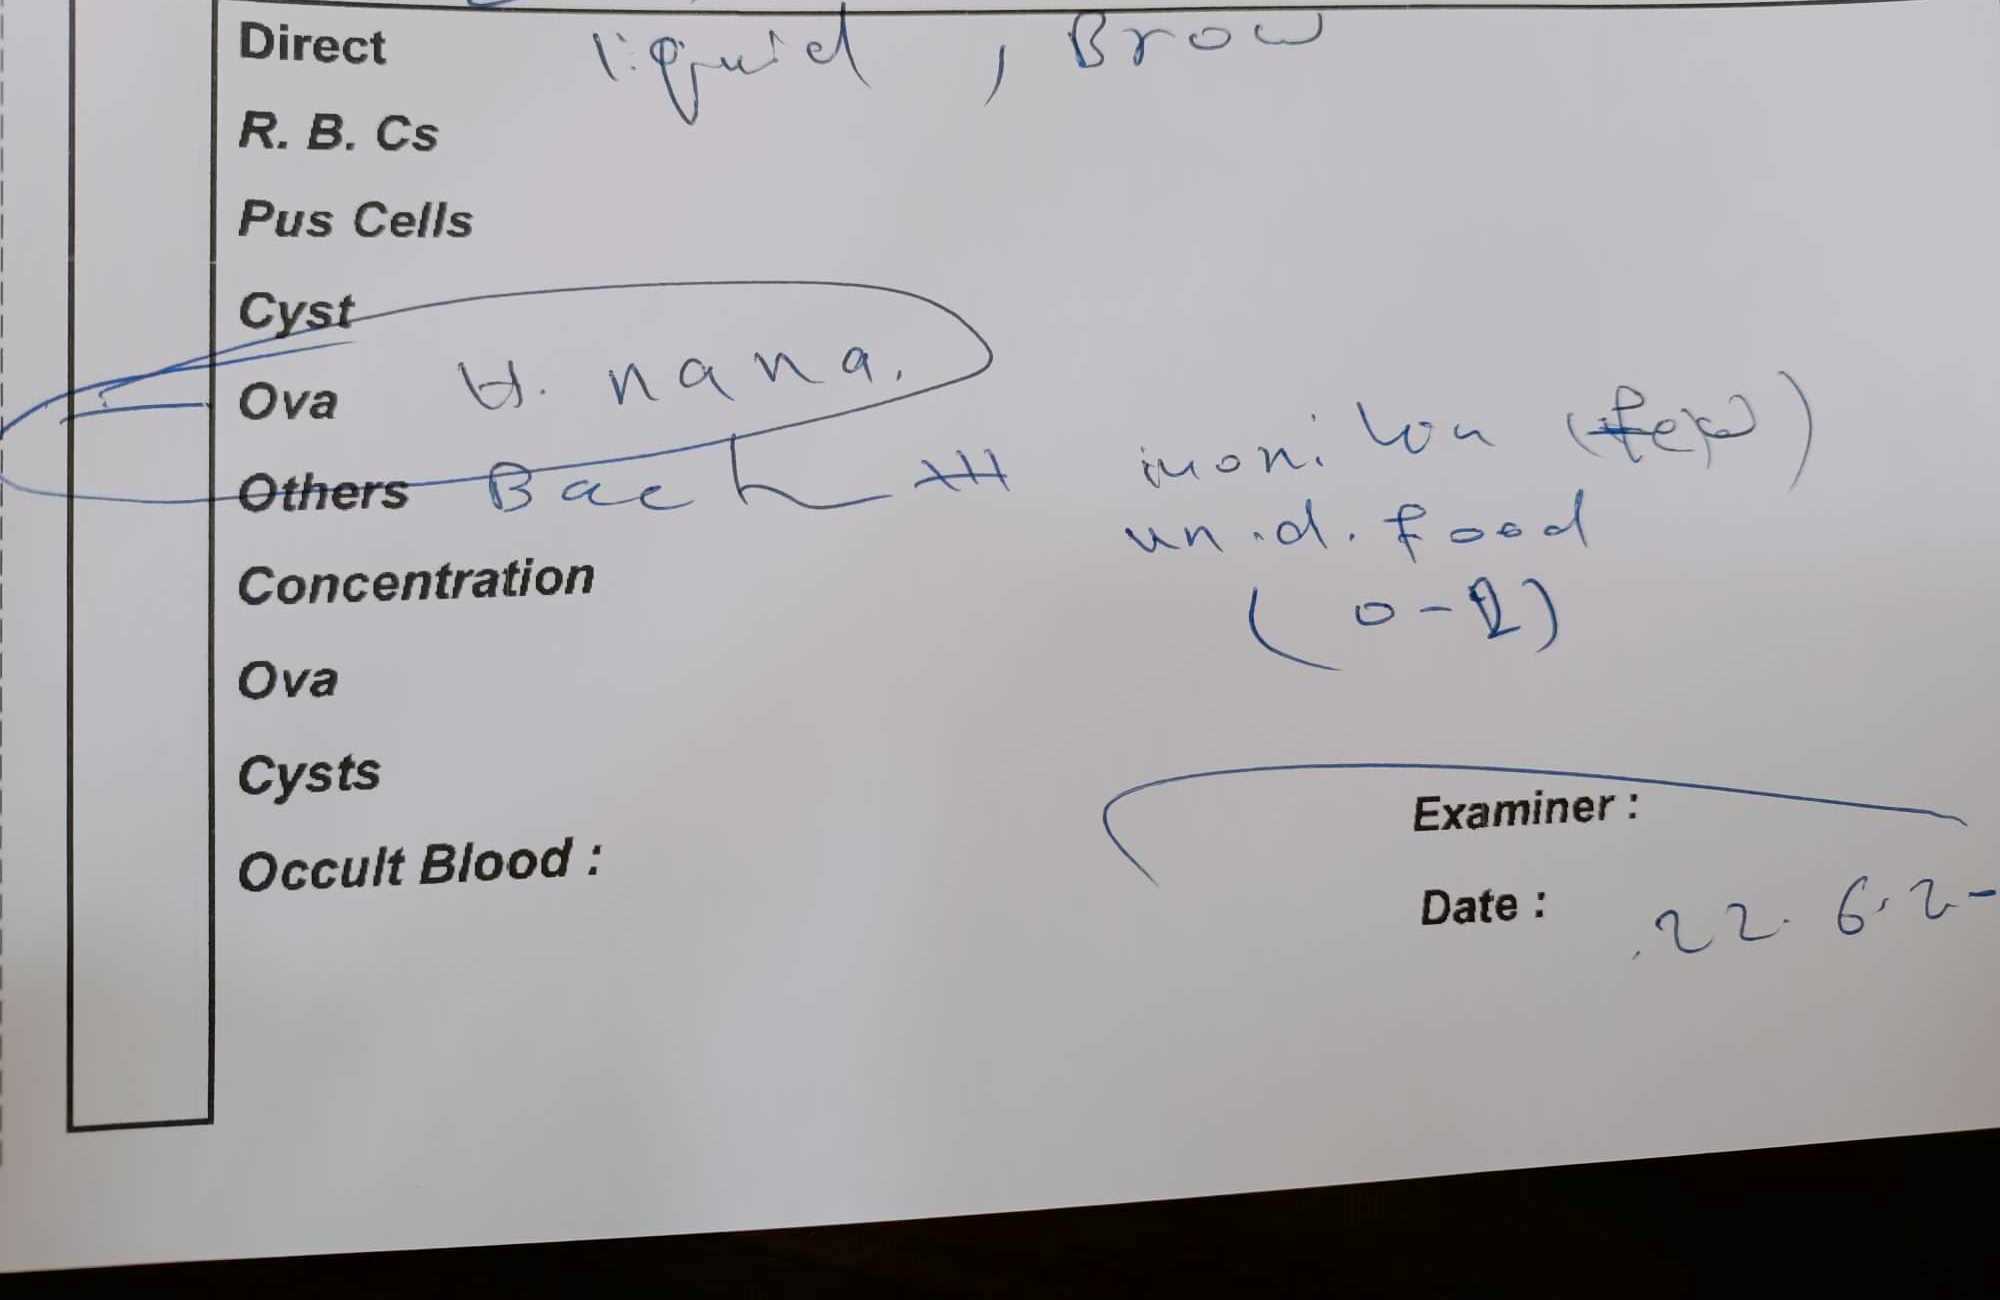 Direct liquid , Brow
R. B. Cs
Pus Cells
Cyst
Ova H. nana.
Others Bact +++ monilia (few)
un.d. food
(0-2)
Concentration
Ova
Cysts
Occult Blood :
Examiner :
Date : 22. 6. 2-